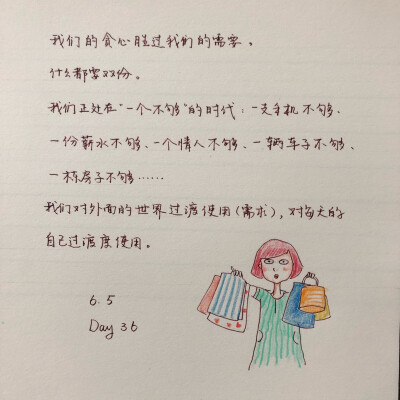 我们的贪心胜过我们的需要，
什么都要双份。
我们正处在"一个不够"的时代：一支手机不够、
一份薪水不够、一个情人不够、一辆车子不够、
一栋房子不够……
我们对外面的世界过渡使用(需求)，对每天的
自己过渡度使用。
6.5
Day 36